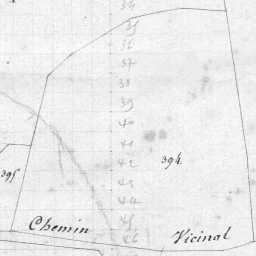 34
35
36
37
38
39
40
41
42
394.
395
43
44
45
Chemin Vicinal
46